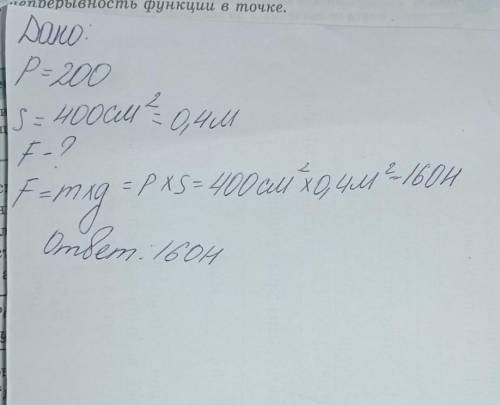 непрерывность функции в точке.
Дано:
P=200
S=400см²=0,4м
F-?
F=mxg=PxS=400см²x0,4м²=160н
Ответ: 160н